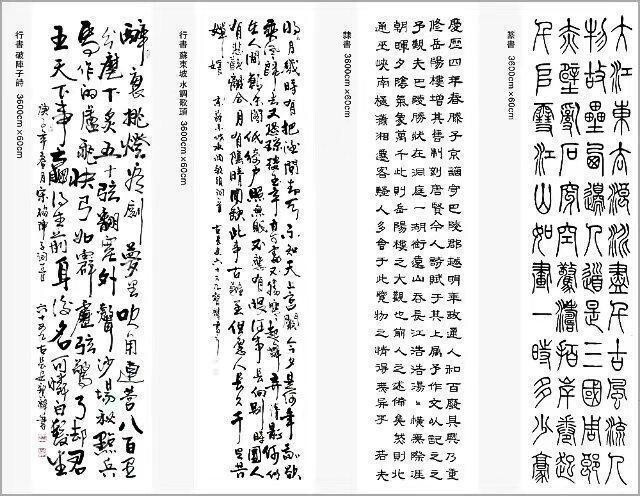 篆書 3600cm×60cm
大江東去浪淘盡千古風流人
物故壘西邊人道是三國周郎
赤壁亂石穿空驚濤拍岸卷起
千堆雪江山如畫一時多少豪
隸書 3600cm×60cm
慶歷四年春滕子京謫守巴陵郡越明年政通人和百廢具興乃重
修岳陽樓增其舊制刻唐賢今人詩賦于其上属予作文以記之
予觀夫巴陵勝狀在洞庭一湖銜遠山吞長江浩浩湯湯橫無際涯
朝暉夕陰氣象萬千此則岳陽樓之大觀也前人之述備矣然則北
通巫峽南極瀟湘遷客騷人多會于此覽物之情得無異乎 若夫
行書 蘇東坡 水調歌頭 3600cm×60cm
明月幾時有把酒問青天不知天上宮闕今夕是何年我欲
乘風歸去又恐瓊樓玉宇高處不勝寒起舞弄清影何似
在人間轉朱閣低綺戶照無眠不應有恨何事長向別時圓人
有悲歡離合月有陰晴圓缺此事古難全但願人長久千里共
嬋娟
行書 破陣子詩 3600cm×60cm
醉裏挑燈看劍夢回吹角連營八百里
分麾下炙五十弦翻塞外聲沙場秋點兵
馬作的盧飛快弓如霹靂弦驚了却君
王天下事贏得生前身後名可憐白髮生